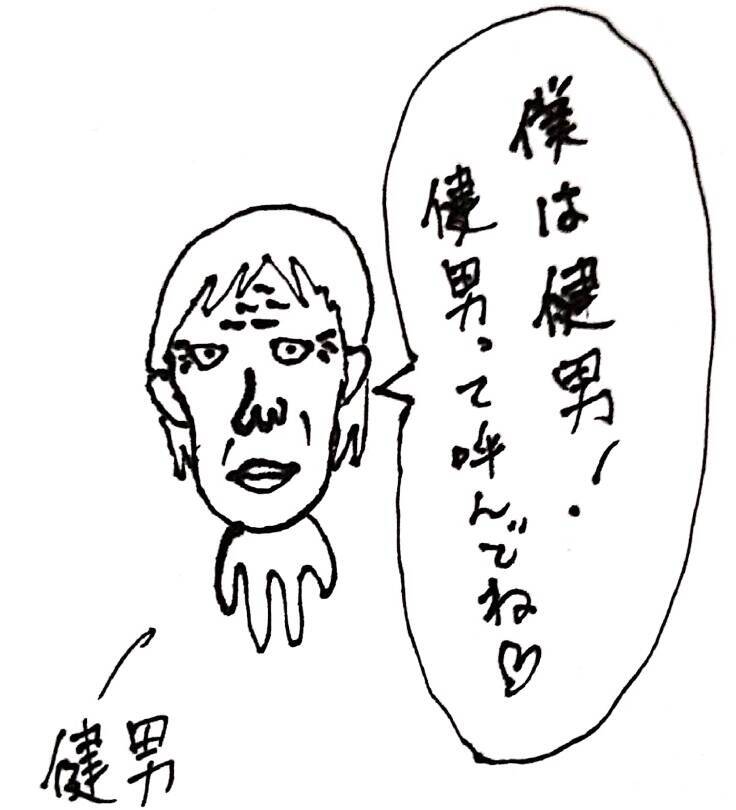 僕は健男!
健男って呼んでね♡
健男